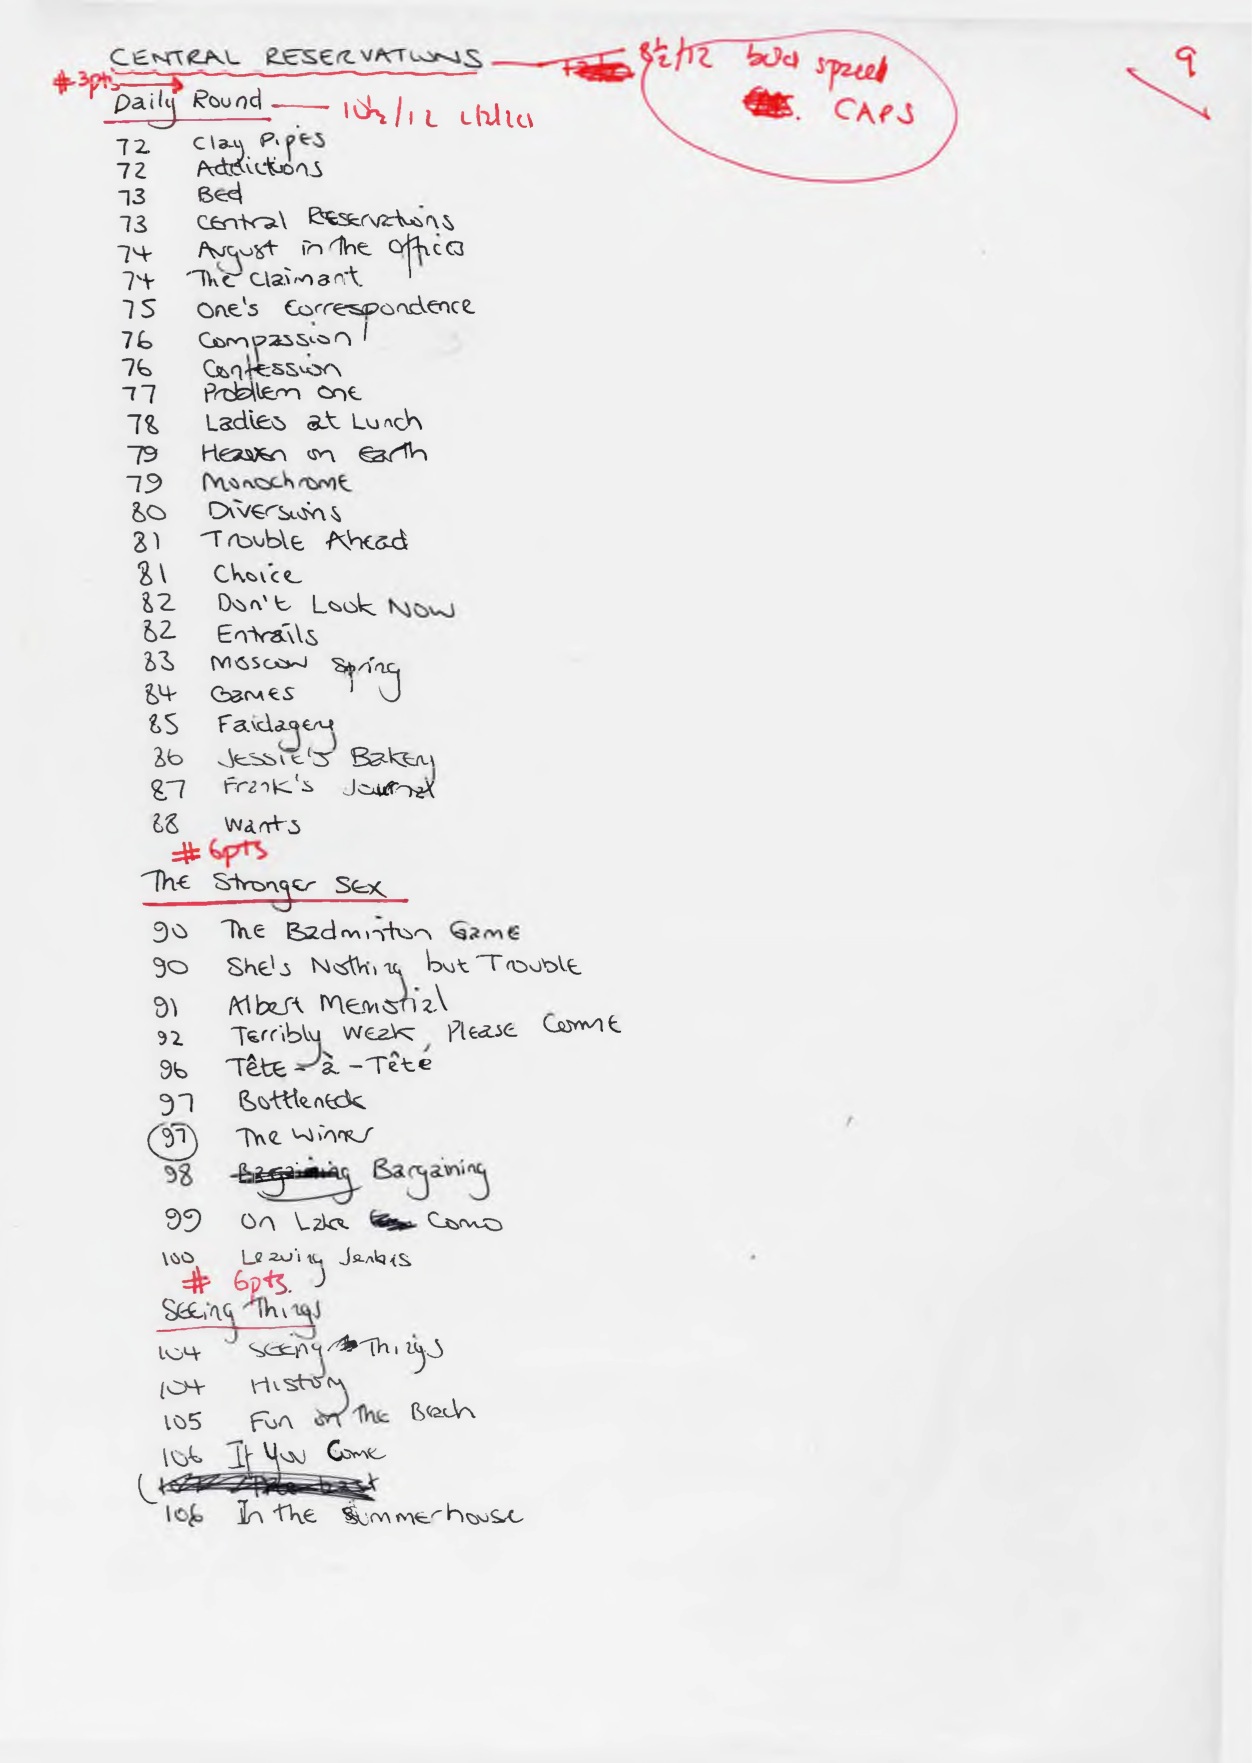 CENTRAL RESERVATIONS 8½/12 bold spaced 9
# 3pts CAPS
Daily Round 10½/12
72 Clay Pipes
72 Addictions
73 Bed
73 Central Reservations
74 August in the Office
74 The Claimant
75 One's Correspondence
76 Compassion
76 Confession
77 Problem One
78 Ladies at Lunch
79 Heaven on Earth
79 Monochrome
80 Diversions
81 Trouble Ahead
81 Choice
82 Don't Look Now
82 Entrails
83 Moscow Spring
84 Games
85 Faidagery
86 Jessie's Bakery
87 Frank's Journal
88 Wants
# 6pts
The Stronger Sex
90 The Badminton Game
90 She's Nothing but Trouble
91 Albert Memorial
92 Terribly Weak, Please Come
96 Tête-à-Tête
97 Bottleneck
97 The Winner
98 Bargaining
99 On Lake Como
100 Leaving Jenkis
# 6pts.
Seeing Things
104 Seeing Things
104 History
105 Fun on the Beach
106 If You Come
106 In the Summerhouse